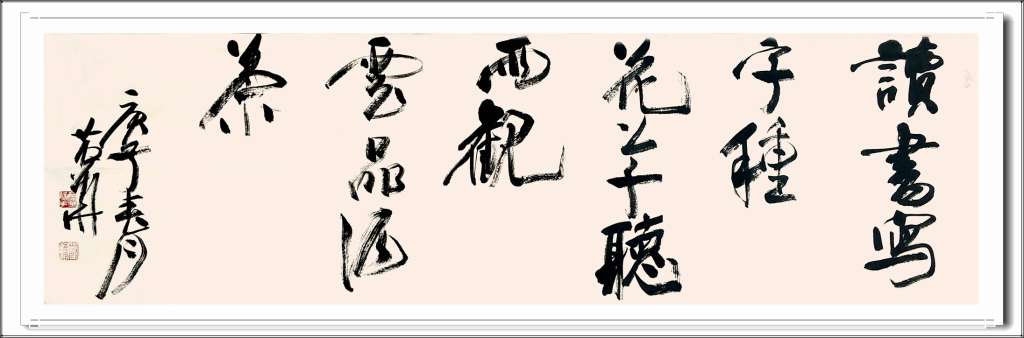 讀書写
字種
花草聽
雨觀
雲品酒
茶
庚子春月